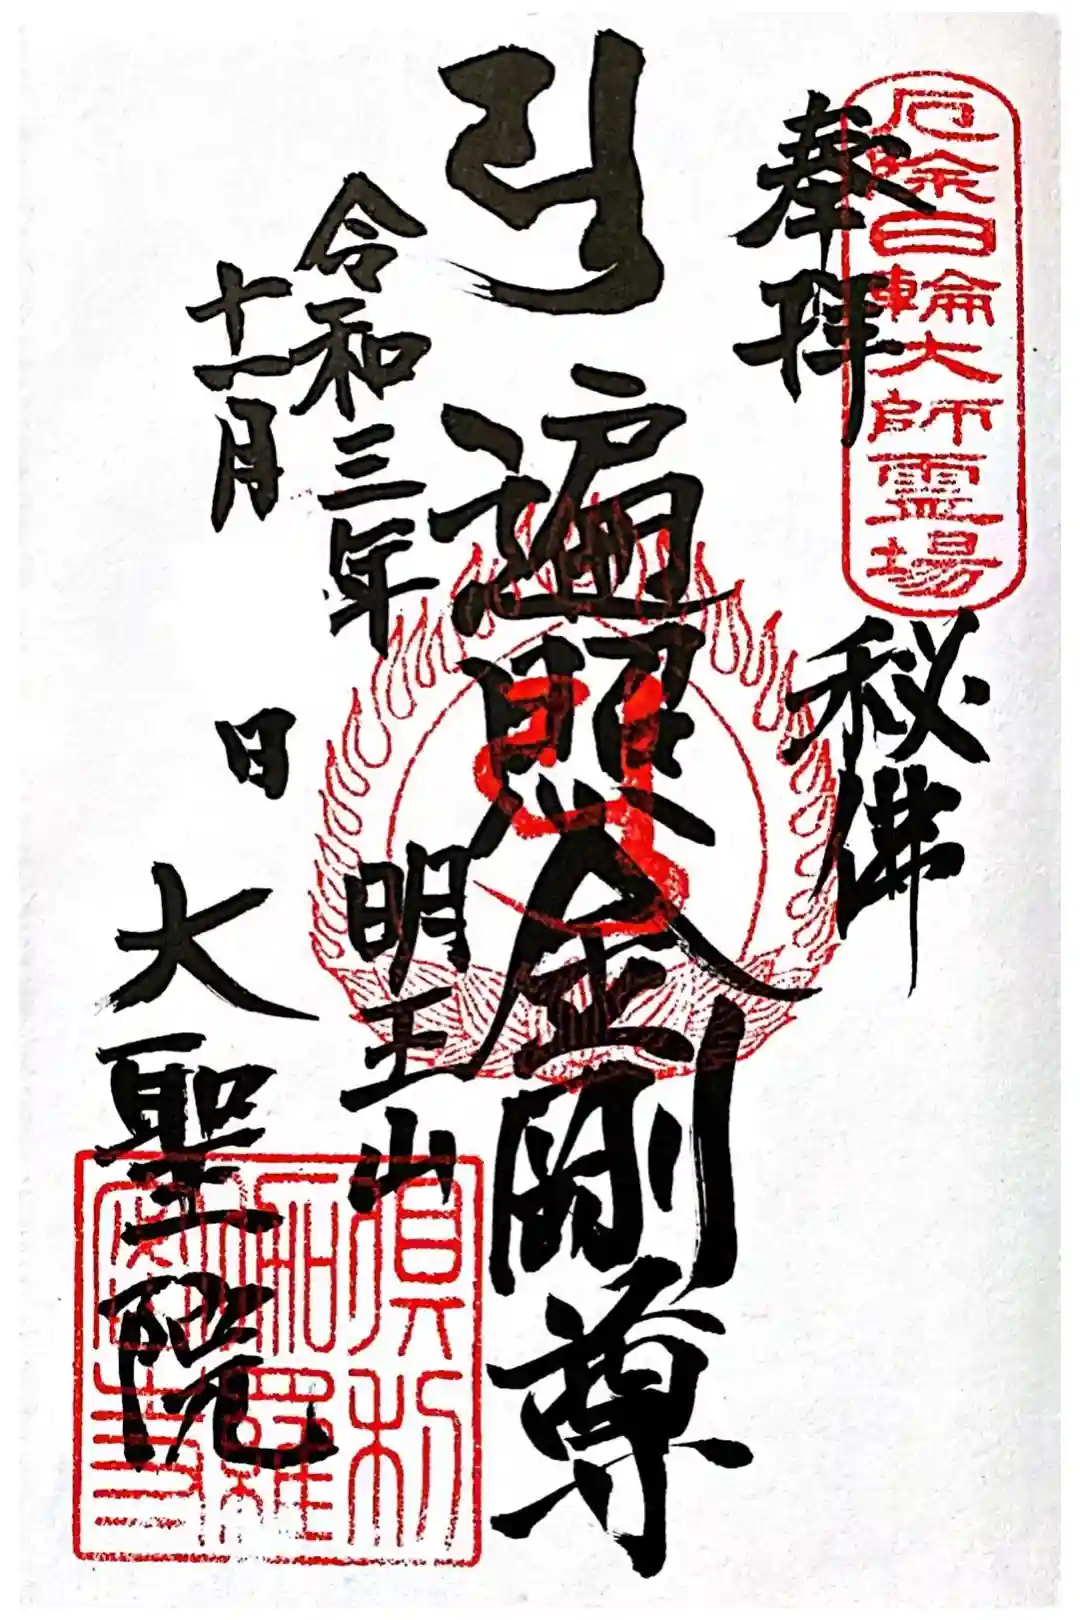 厄除日輪大師霊場
奉拝
秘佛
遍照金剛尊
令和三年
十一月
日
明王山
大聖院